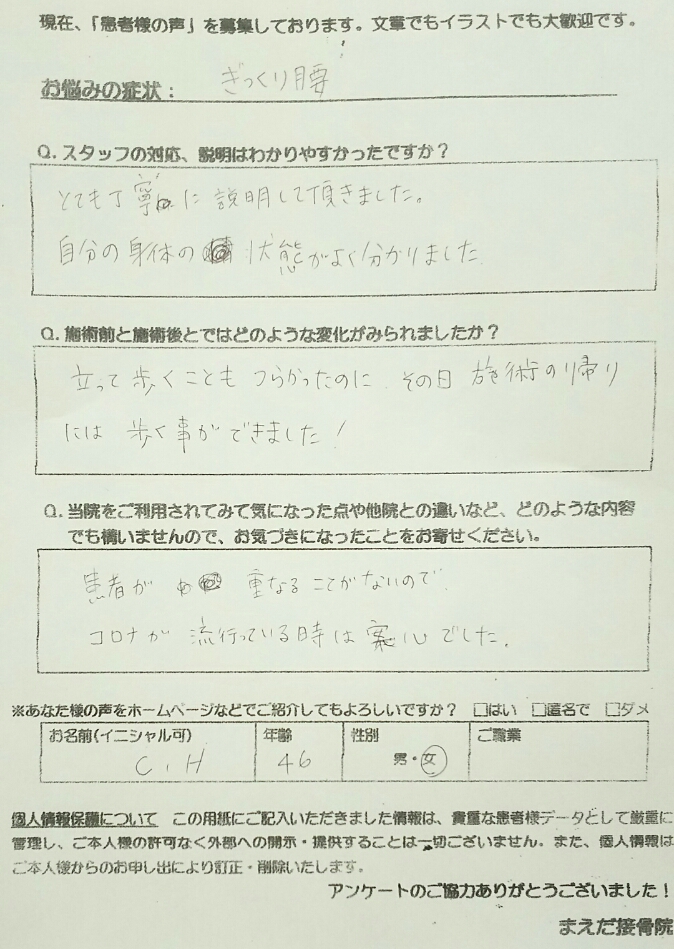 現在、「患者様の声」を募集しております。文章でもイラストでも大歓迎です。
お悩みの症状： ぎっくり腰
Q. スタッフの対応、説明はわかりやすかったですか？
とても丁寧に説明して頂きました。
自分の身体の状態がよく分かりました
Q. 施術前と施術後とではどのような変化がみられましたか？
立って歩くこともつらかったのに、その日施術の帰り
には歩く事ができました！
Q. 当院をご利用されてみて気になった点や他院との違いなど、どのような内容
でも構いませんので、お気づきになったことをお寄せください。
患者が重なることがないので、
コロナが流行っている時は安心でした。
※あなた様の声をホームページなどでご紹介してもよろしいですか？ □はい □匿名で □ダメ
お名前(イニシャル可) 年齢 性別 ご職業
C.H 46 男・女
個人情報保護について この用紙にご記入いただきました情報は、貴重な患者様データとして厳重に
管理し、ご本人様の許可なく外部への開示・提供することは一切ございません。また、個人情報は
ご本人様からのお申し出により訂正・削除いたします。
アンケートのご協力ありがとうございました！
まえだ接骨院